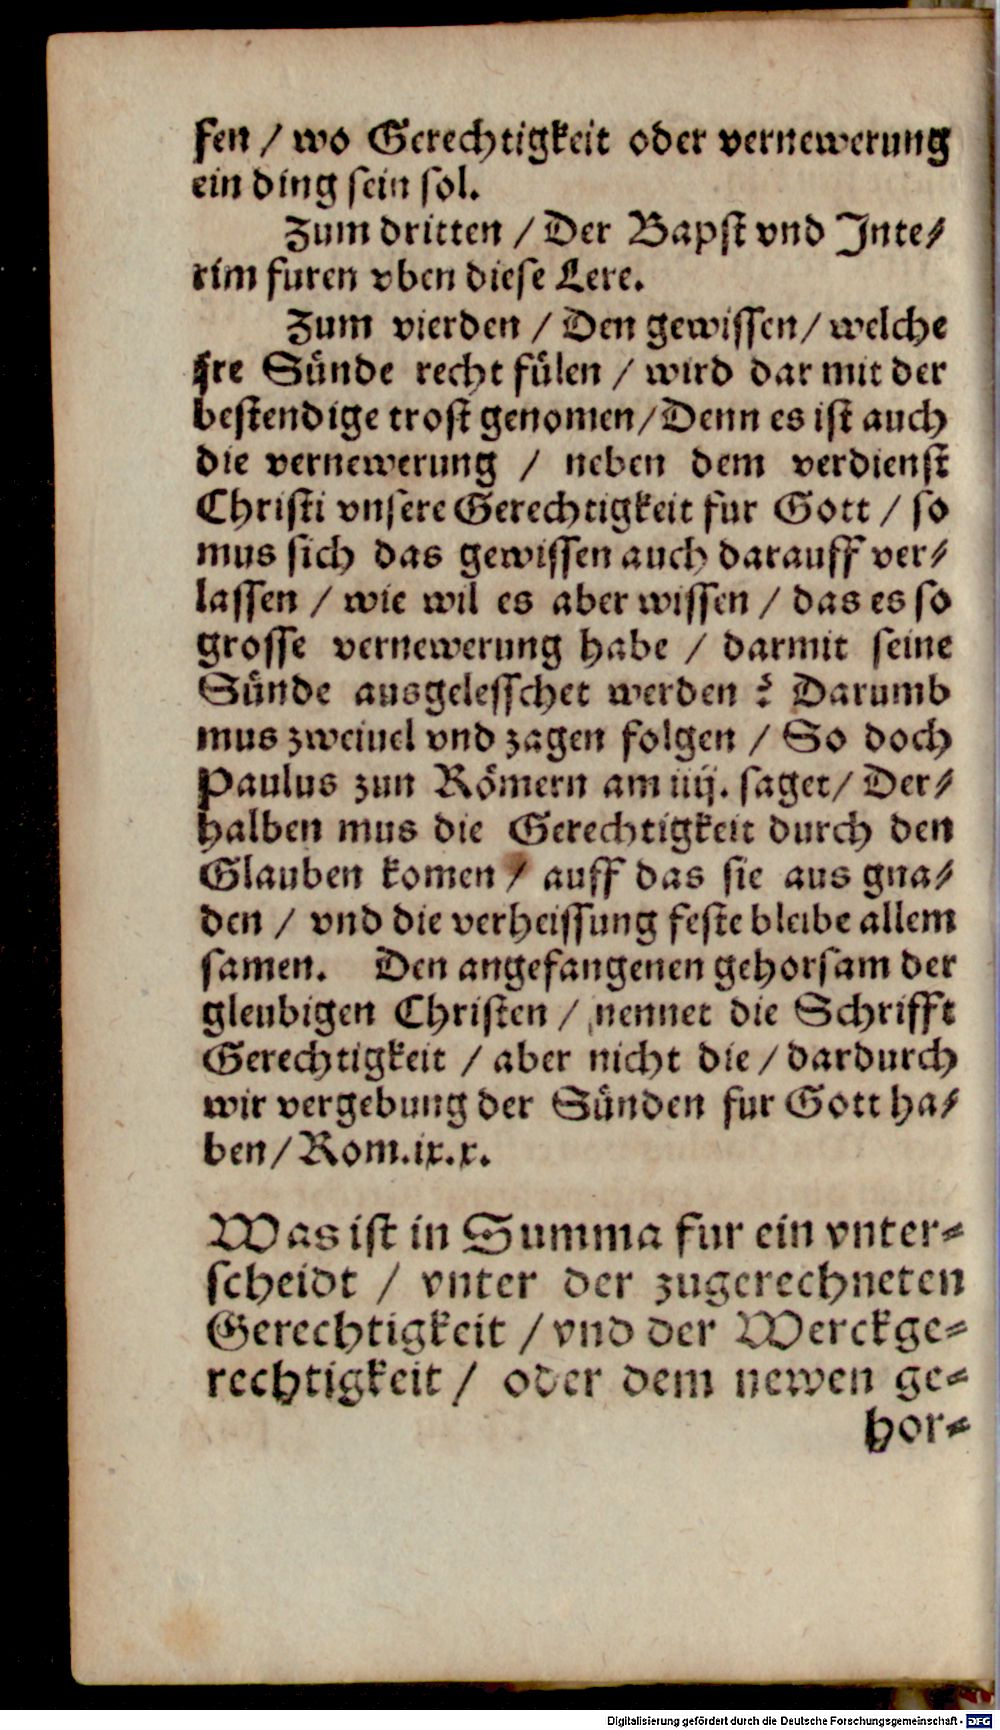 fen / wo Gerechtigkeit oder vernewerung
ein ding sein sol.
Zum dritten / Der Bapst vnd Inte⸗
rim furen vben diese Lere.
Zum vierden / Den gewissen / welche
jre Sünde recht fülen / wird dar mit der
bestendige trost genomen / Denn es ist auch
die vernewerung / neben dem verdienst
Christi vnsere Gerechtigkeit fur Gott / so
mus sich das gewissen auch darauff ver⸗
lassen / wie wil es aber wissen / das es so
grosse vernewerung habe / darmit seine
Sünde ausgelesschet werden ? Darumb
mus zweiuel vnd zagen folgen / So doch
Paulus zun Römern am iiij. saget / Der⸗
halben mus die Gerechtigkeit durch den
Glauben komen / auff das sie aus gna⸗
den / vnd die verheissung feste bleibe allem
samen. Den angefangenen gehorsam der
gleubigen Christen / nennet die Schrifft
Gerechtigkeit / aber nicht die / dardurch
wir vergebung der Sünden fur Gott ha⸗
ben / Rom.ix.x.
Was ist in Summa fur ein vnter⸗
scheidt / vnter der zugerechneten
Gerechtigkeit / vnd der Werckge⸗
rechtigkeit / oder dem newen ge⸗
hor⸗
Digitalisierung gefördert durch die Deutsche Forschungsgemeinschaft - DFG